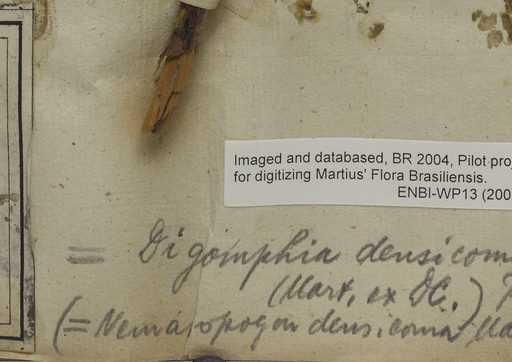 Imaged and databased, BR 2004, Pilot proj
for digitizing Martius' Flora Brasiliensis.
ENBI-WP13 (200
= Digomphia densicom
(Mart. ex DC.)
(= Nematopogon densicoma Ma